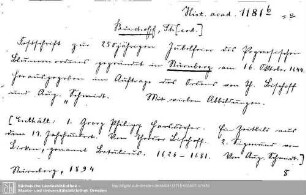 Hist. acad. 1181 b
Bischoff, Th. [ed.]
Festschrift zur 250jährigen Jubelfeier des Pegnesischen
Blumenordens gegründet in Nürnberg am 16. Oktob. 1644
herausgegeben im Auftrage des Ordens von Th. Bischoff
und Aug. Schmidt. Mit vielen Abbildungen.
[Enthält: 1. Georg Philipp Harsdörfer. Ein Zeitbild aus
dem 17. Jahrhundert. Theodor Bischoff. 2. Sigmund von
Birken, genannt Betulius. 1626-1681. Von Aug. Schmidt.]
Nürnberg, 1894 8